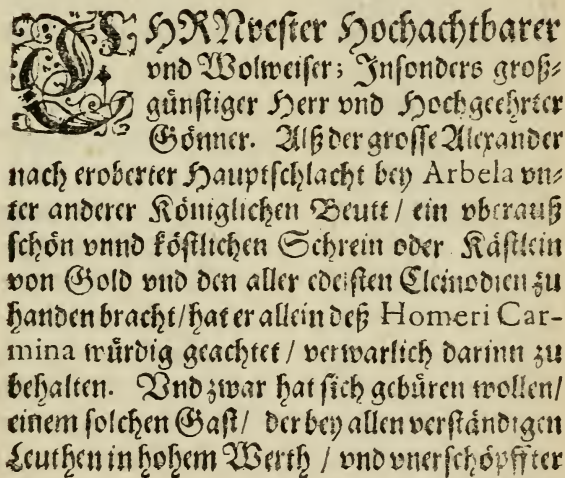 EHRNvester Hochachtbarer
vnd Wolweiser; Jnsonders groß⸗
günstiger Herr vnd Hochgeehrter
Gönner. Alß der grosse Alexander
nach eroberter Hauptschlacht bey Arbela vn⸗
ter anderer Königlichen Beutt / ein vberauß
schön vnnd köstlichen Schrein oder Kästlein
von Gold vnd den aller edelsten Cleinodien zu
handen bracht/ hat er allein deß Homeri Car-
mina würdig geachtet / verwarlich darinn zu
behalten. Vnd zwar hat sich gebüren wollen/
einem solchen Gast/ der bey allen verständigen
Leuthen in hohem Werth / vnd vnerschöpffter